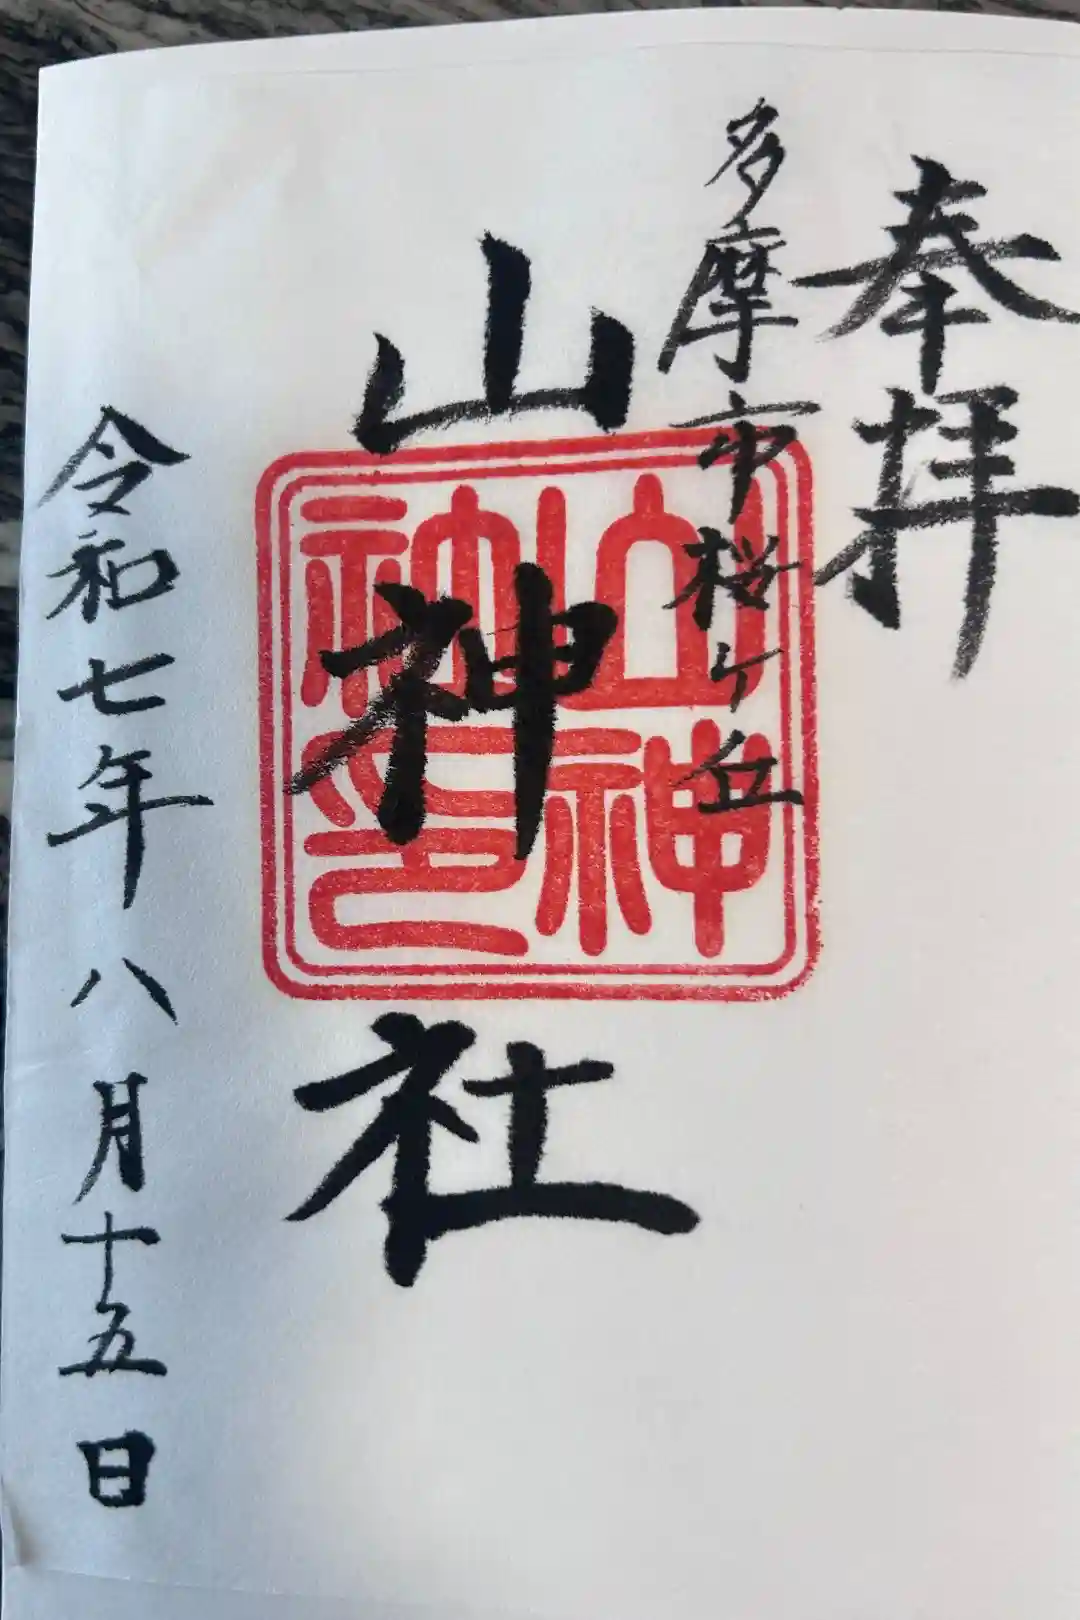 奉拝
多摩市桜ヶ丘
山神社
山神神社印
令和七年八月十五日